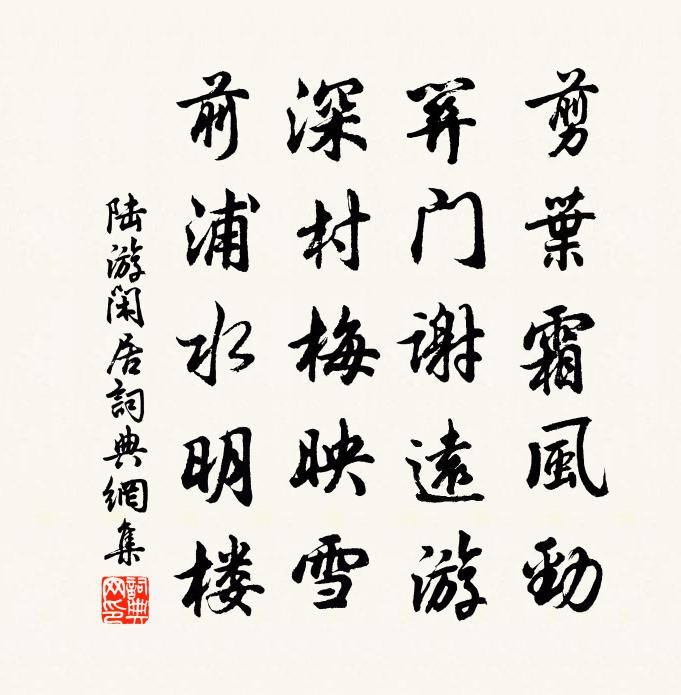 剪葉霜風勁
门謝遠游
深村梅映雪
前浦水明楼
陆游閑居詞典網集
詞典
网印